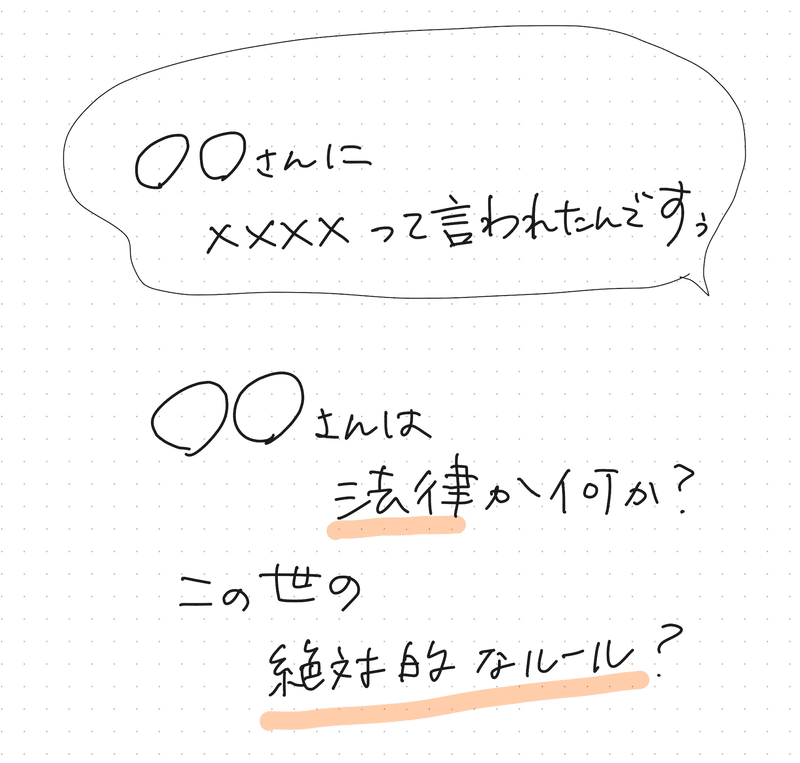 〇〇さんに
××××って言われたんですぅ
〇〇さんは
法律か何か?
この世の
絶対的なルール?